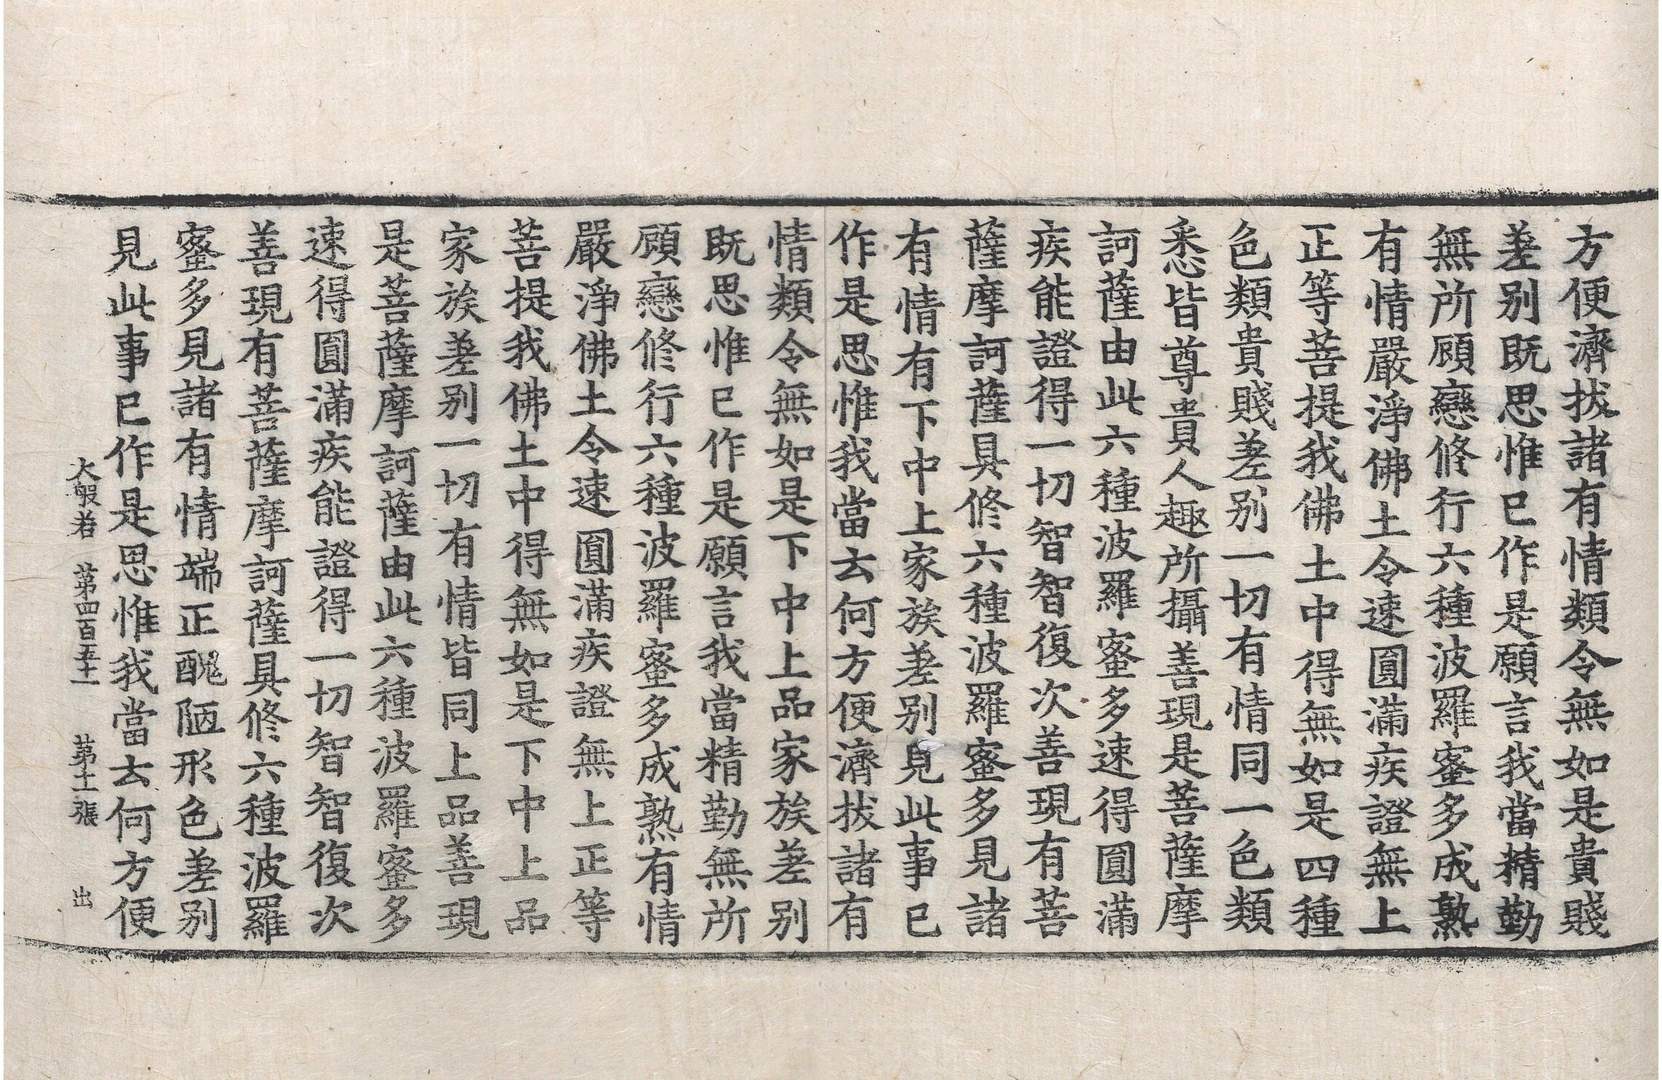 方便濟拔諸有情類令無如是貴賤
差別既思惟已作是願言我當精勤
無所顧戀修行六種波羅蜜多成熟
有情嚴淨佛土令速圓滿疾證無上
正等菩提我佛土中得無如是四種
色類貴賤差別一切有情同一色類
悉皆尊貴人趣所攝善現是菩薩摩
訶薩由此六種波羅蜜多速得圓滿
疾能證得一切智智復次善現有菩
薩摩訶薩具修六種波羅蜜多見諸
有情有下中上家族差別見此事已
作是思惟我當云何方便濟拔諸有
情類令無如是下中上品家族差別
既思惟已作是願言我當精勤無所
顧戀修行六種波羅蜜多成熟有情
嚴淨佛土令速圓滿疾證無上正等
菩提我佛土中得無如是下中上品
家族差別一切有情皆同上品善現
是菩薩摩訶薩由此六種波羅蜜多
速得圓滿疾能證得一切智智復次
善現有菩薩摩訶薩具修六種波羅
蜜多見諸有情端正醜陋形色差別
見此事已作是思惟我當云何方便
大般若 第四百五十一 第十一張 出